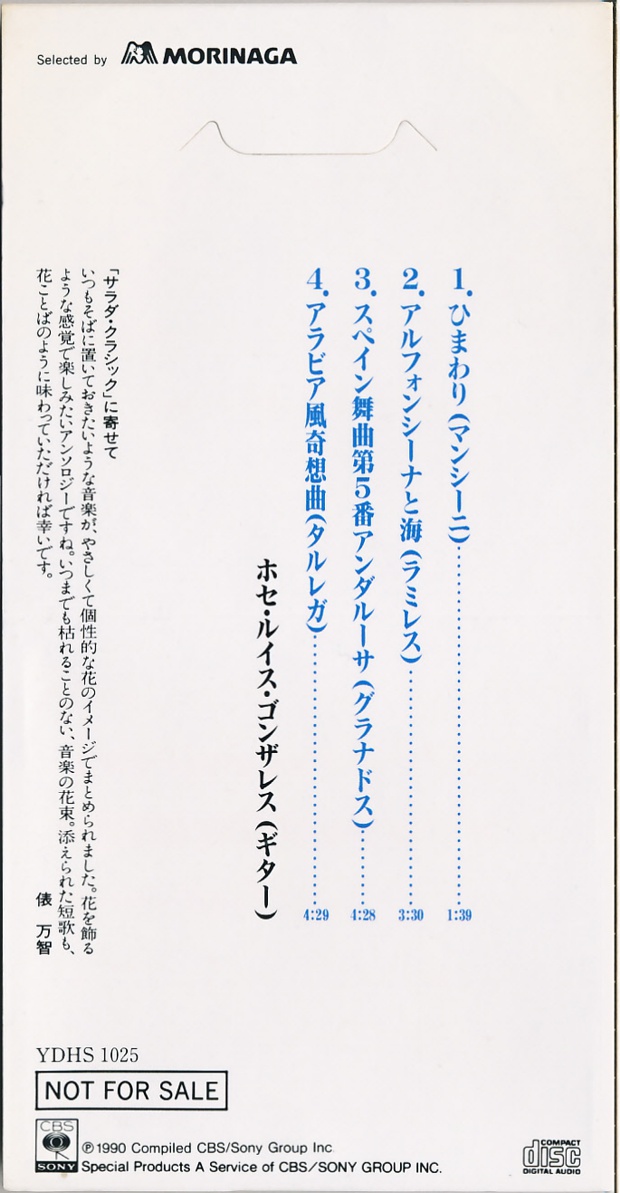 Selected by MORINAGA
1. ひまわり(マンシーニ)……………………1:39
2. アルフォンシーナと海(ラミレス)……………………3:30
3. スペイン舞曲第5番アンダルーサ(グラナドス)…………4:28
4. アラビア風奇想曲(タルレガ)……………………4:29
ホセ・ルイス・ゴンザレス(ギター)
「サラダ・クラシック」に寄せて
いつもそばに置いておきたいような音楽が、やさしくて個性的な花のイメージでまとめられました。花を飾る
ような感覚で楽しみたいアンソロジーですね。いつまでも枯れることのない、音楽の花束。添えられた短歌も、
花ことばのように味わっていただければ幸いです。
俵 万智
YDHS 1025
NOT FOR SALE
CBS
SONY
Ⓟ1990 Compiled CBS/Sony Group Inc
Special Products A Service of CBS/SONY GROUP INC.
COMPACT
disc
DIGITAL AUDIO